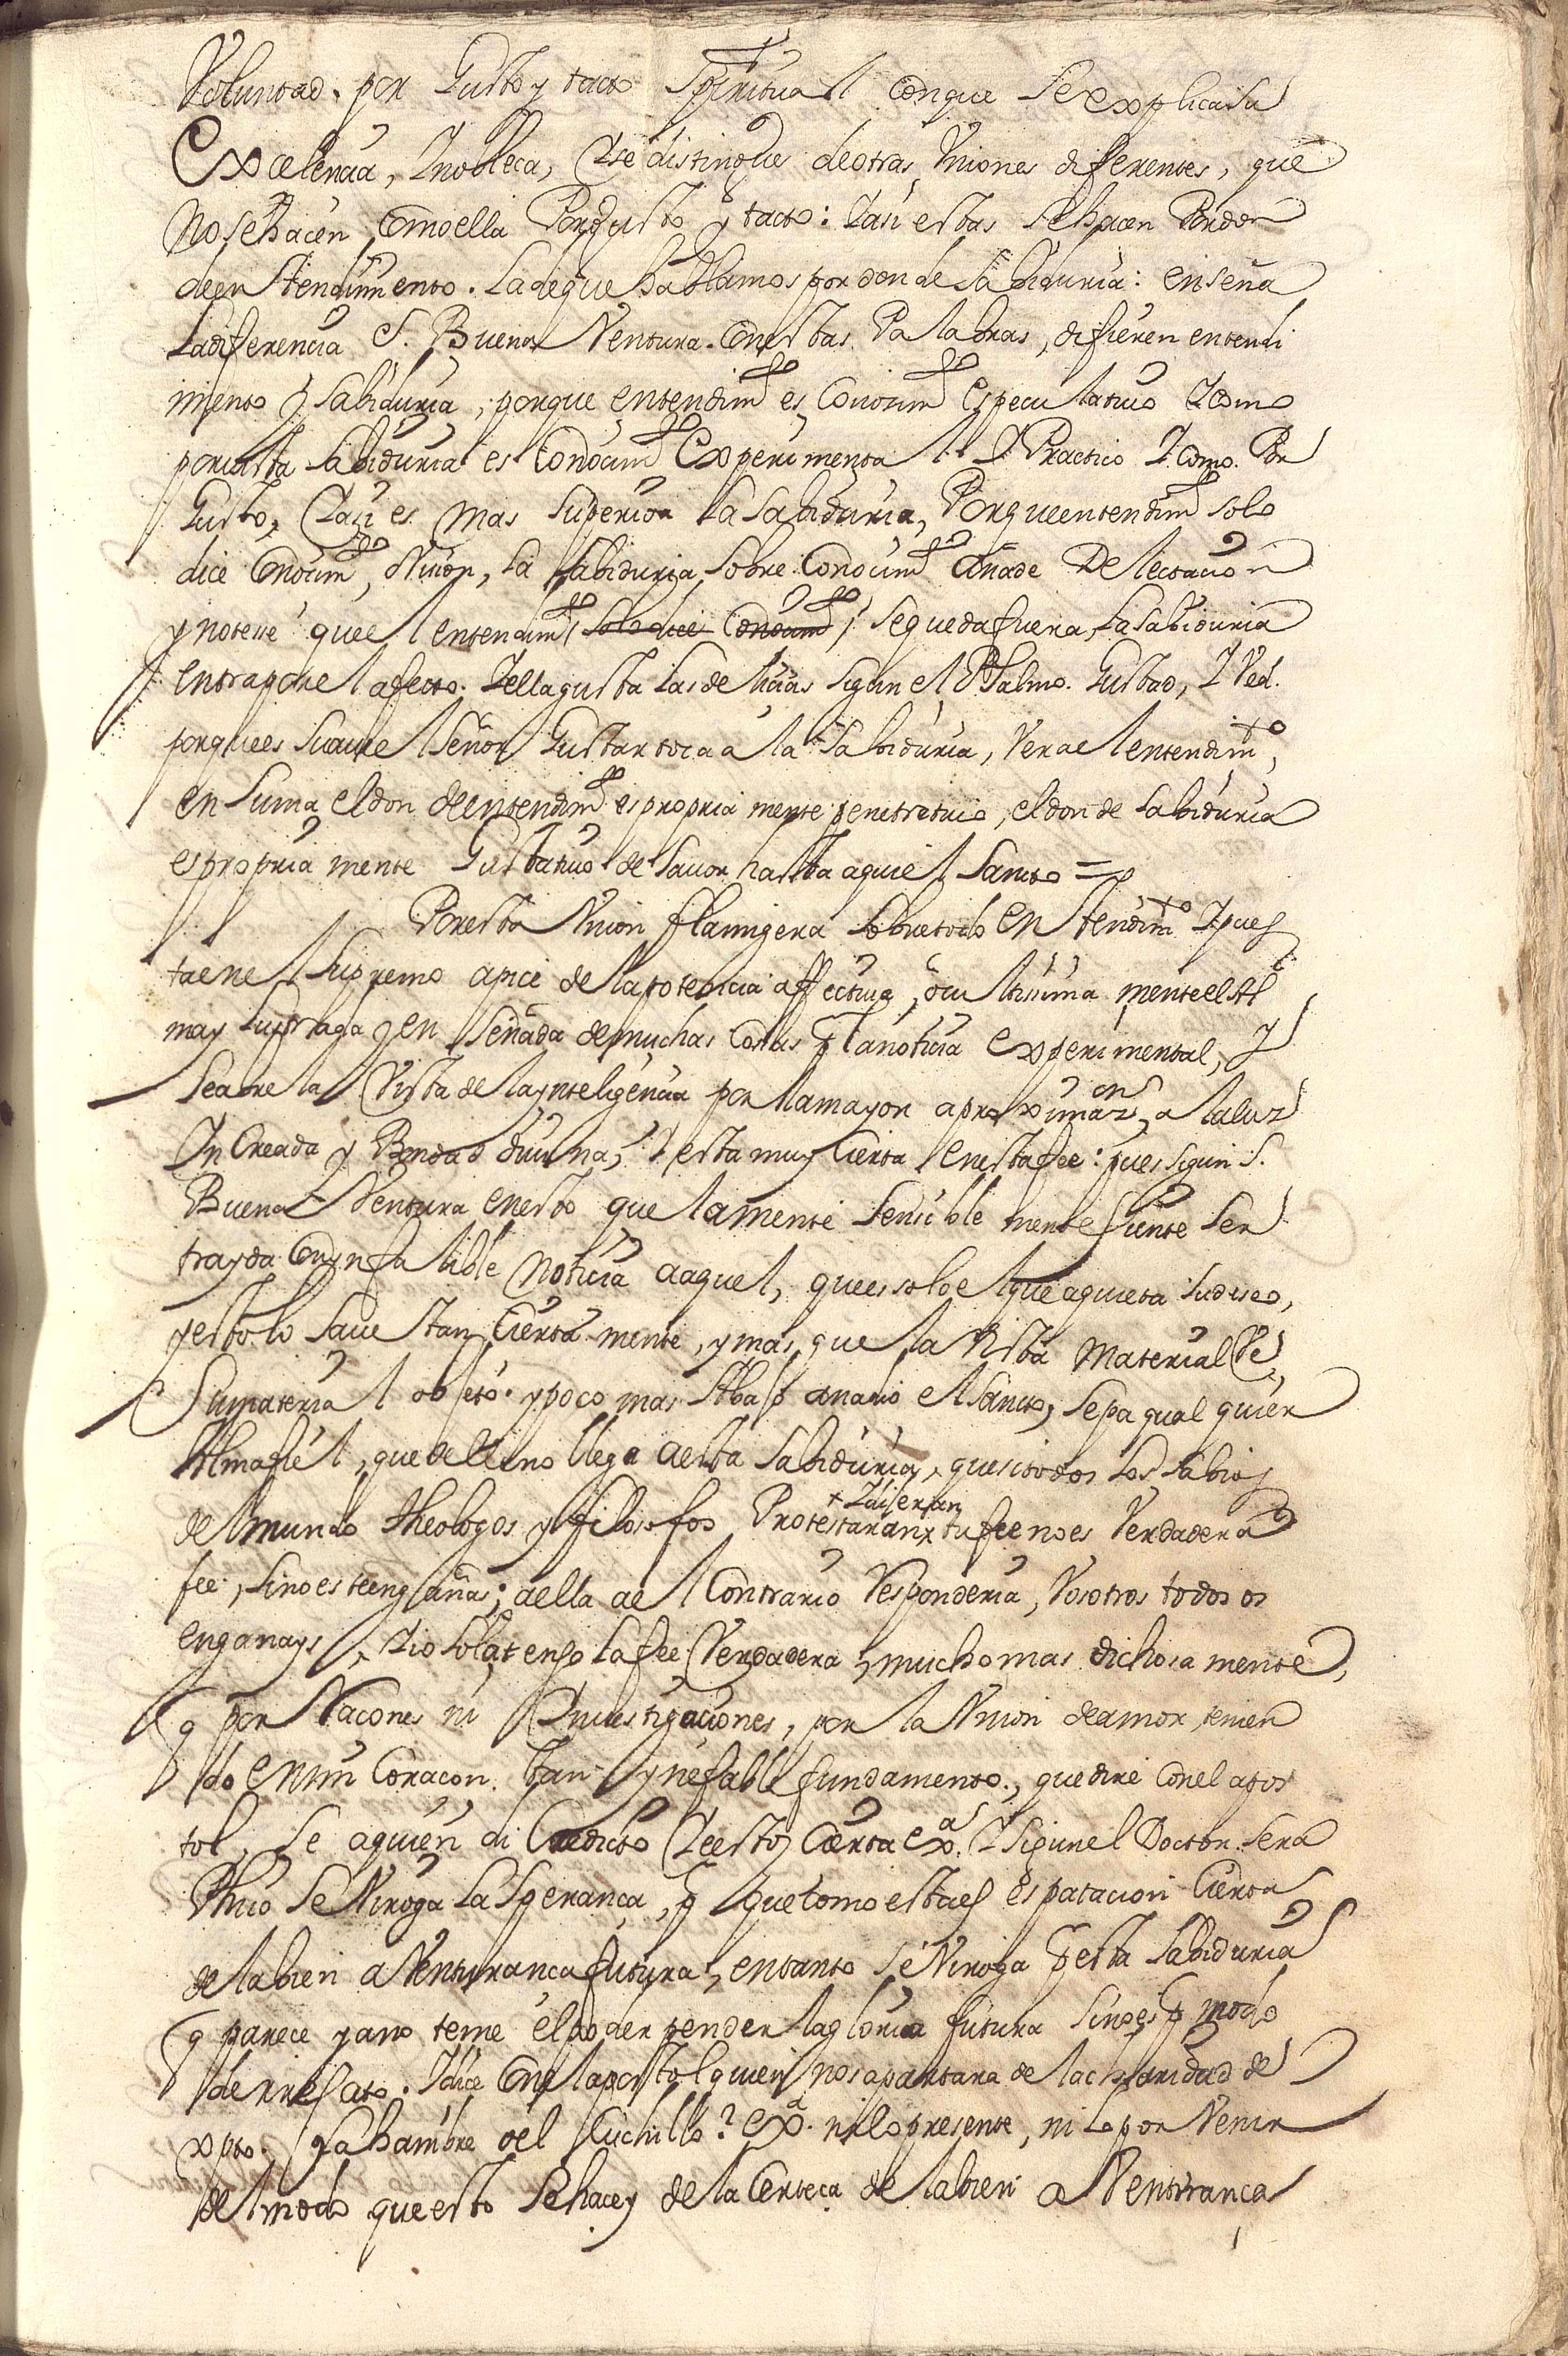 Voluntad. por Gusto y tacto Spiritual Conque Se explica Su
Excelencia, Y nobleça, Y se distingue de otras Vniones diferentes, que
no se hacen como ella Por gusto y tacto: Y asi estas Se hacen Por don
de en Stendimiento. La de que hablamos por don de Sabiduria: enseña
La diferencia S. Buena Ventura. Con estas Palabras, difieren entendi
miento y Sabiduria, porque entendimto es Conocimto Especulatiuo Y como
por vista Sabiduria es Conocimto Experimental Y Practico Y como. Por
Gusto, Y asi es mas Superior La Sabiduria, Porque entendimto Solo
dice Conocimto, Vision, La Sabiduria Sobre Conocimto añade Delectacion
y notesse que el entendimto / Solo dice Conocimto / se queda fuera, La Sabiduria
entra por el afecto. Y ella gusta Las delicias Sigun el Psalmo. Gustad, Y Ved.
porque es Suaue el Señor Gustar toca a la Sabiduria, Ver al entendimto,
en Suma el don de entendimto es propria mente penetratiuo, el don de Sabiduria
es propria mente Gustatiuo de Sauor hasta aqui el Santo =
Por esta Vnion flamigera Sobre todo en Stendimto Y pues
ta en el Supremo apice de la potencia affectiua, ocultissima mente el Al
ma y Sufraga y en Señada de muchas Cosas p la noticia experimental, Y
Se abre la Vista de la ynteligencia por la mayor aproximaon a la luz
In Creada y Bondad diuina, Y esta muy Cierta en esta fee: pues sigun S.
Buena Ventura en esto que la mente Sensible mente Siente Ser
trayda Con ynfalible noticia a aquel, que es solo el que aquieta Su deseo,
y esto lo Saue tan Cierta mente, y mas que la Vista material Ve
Su materia l objeto. y poco mas Abajo añadio el Santo, Sepa qual quier
Alma fiel, que de lleno llega a esta Sabiduria, que si todos Los Sabios
del mundo theologos y filosofos Protestaran + Y dixeran tu fee no es Verdadera
fee, Sino es te engañas; aella al Contrario Responderia, Vosotros todos os
enganays, Y io Sola tengo La fee Verdadera y mucho mas dichosa mente,
q por Racones ni Ynuestigaciones, por la Vnion de amor, tenien
do en mi Coraçon. tan ynefable fundamento., que dire Con el apos
tol, Se a quien di Credito Y estoy Cierta exa. Y sigun el Doctor Sera
Phico Se Viroga La Sperança, q que como esta es espatacion Cierta
de la bien a Venturança futura, en tanto Se Viroga p esta Sabiduria
q parece ya no teme el poder perder la gloria futura Sino es p modo
de rrelato. Y dice Con el apostol quien nos apartara de la charidad de
xpto. q a hambre o el Cuchillo? exa. ni lo presente, ni Lo por Venir
del modo que esto Se hace y de la Certeça de la bien a Venturança